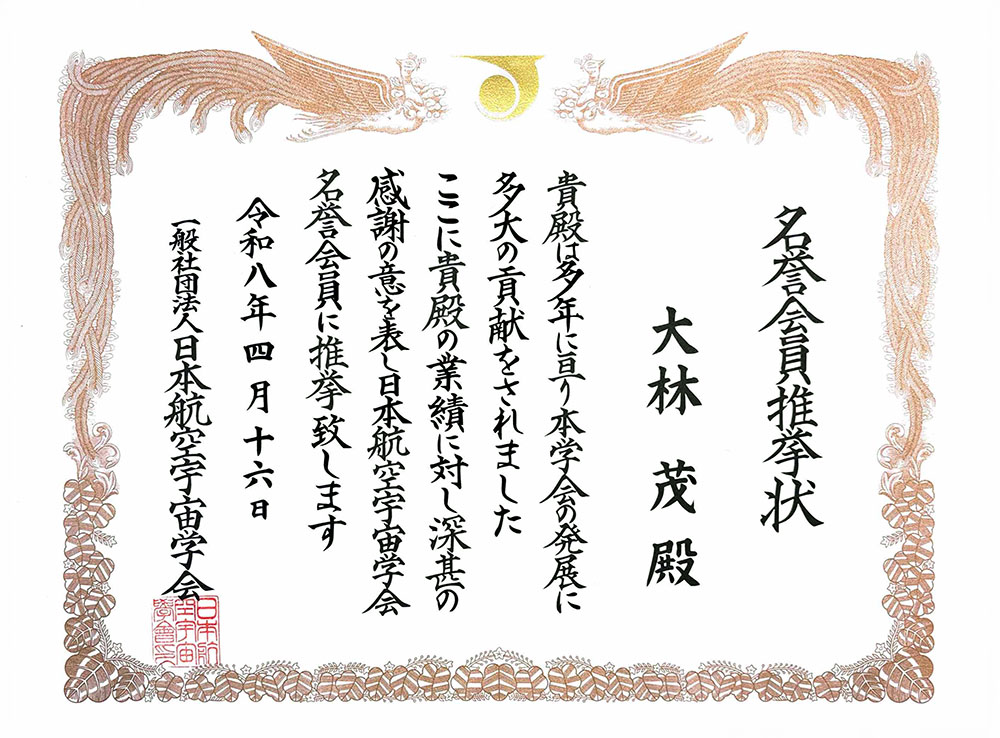 名誉会員推挙状
大林 茂 殿
貴殿は多年に亘り本学会の発展に
多大の貢献をされました
ここに貴殿の業績に対し深甚の
感謝の意を表し日本航空宇宙学会
名誉会員に推挙致します
令和八年四月十六日
一般社団法人日本航空宇宙学会
日本航
空宇宙
學會之印